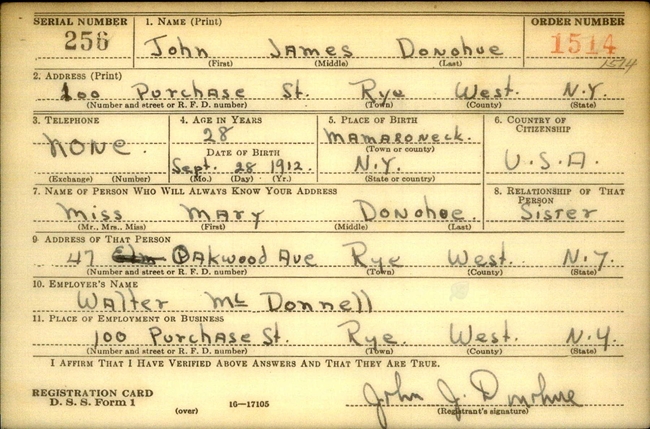 SERIAL NUMBER 1. NAME (Print) ORDER NUMBER
256 John James Donohue 1514
(First) (Middle) (Last) 1514
2. ADDRESS (Print)
100 Purchase St. Rye West. N.Y.
(Number and street or R. F. D. number) (Town) (County) (State)
3. TELEPHONE 4. AGE IN YEARS 5. PLACE OF BIRTH 6. COUNTRY OF CITIZENSHIP
None 28 Mamaroneck. U.S.A.
DATE OF BIRTH (Town or county)
Sept. 28 1912. N.Y.
(Exchange) (Number) (Mo.) (Day) (Yr.) (State or country)
7. NAME OF PERSON WHO WILL ALWAYS KNOW YOUR ADDRESS 8. RELATIONSHIP OF THAT PERSON
Miss Mary Donohoe. Sister
(Mr., Mrs., Miss) (First) (Middle) (Last)
9. ADDRESS OF THAT PERSON
47 Elm Oakwood Ave Rye West. N.Y.
(Number and street or R. F. D. number) (Town) (County) (State)
10. EMPLOYER'S NAME
Walter Mc Donnell
11. PLACE OF EMPLOYMENT OR BUSINESS
100 Purchase St. Rye. West. N.Y.
(Number and street or R. F. D. number) (Town) (County) (State)
I AFFIRM THAT I HAVE VERIFIED ABOVE ANSWERS AND THAT THEY ARE TRUE.
REGISTRATION CARD John J. Donohue
D. S. S. Form 1 (over) 16—17105 (Registrant's signature)